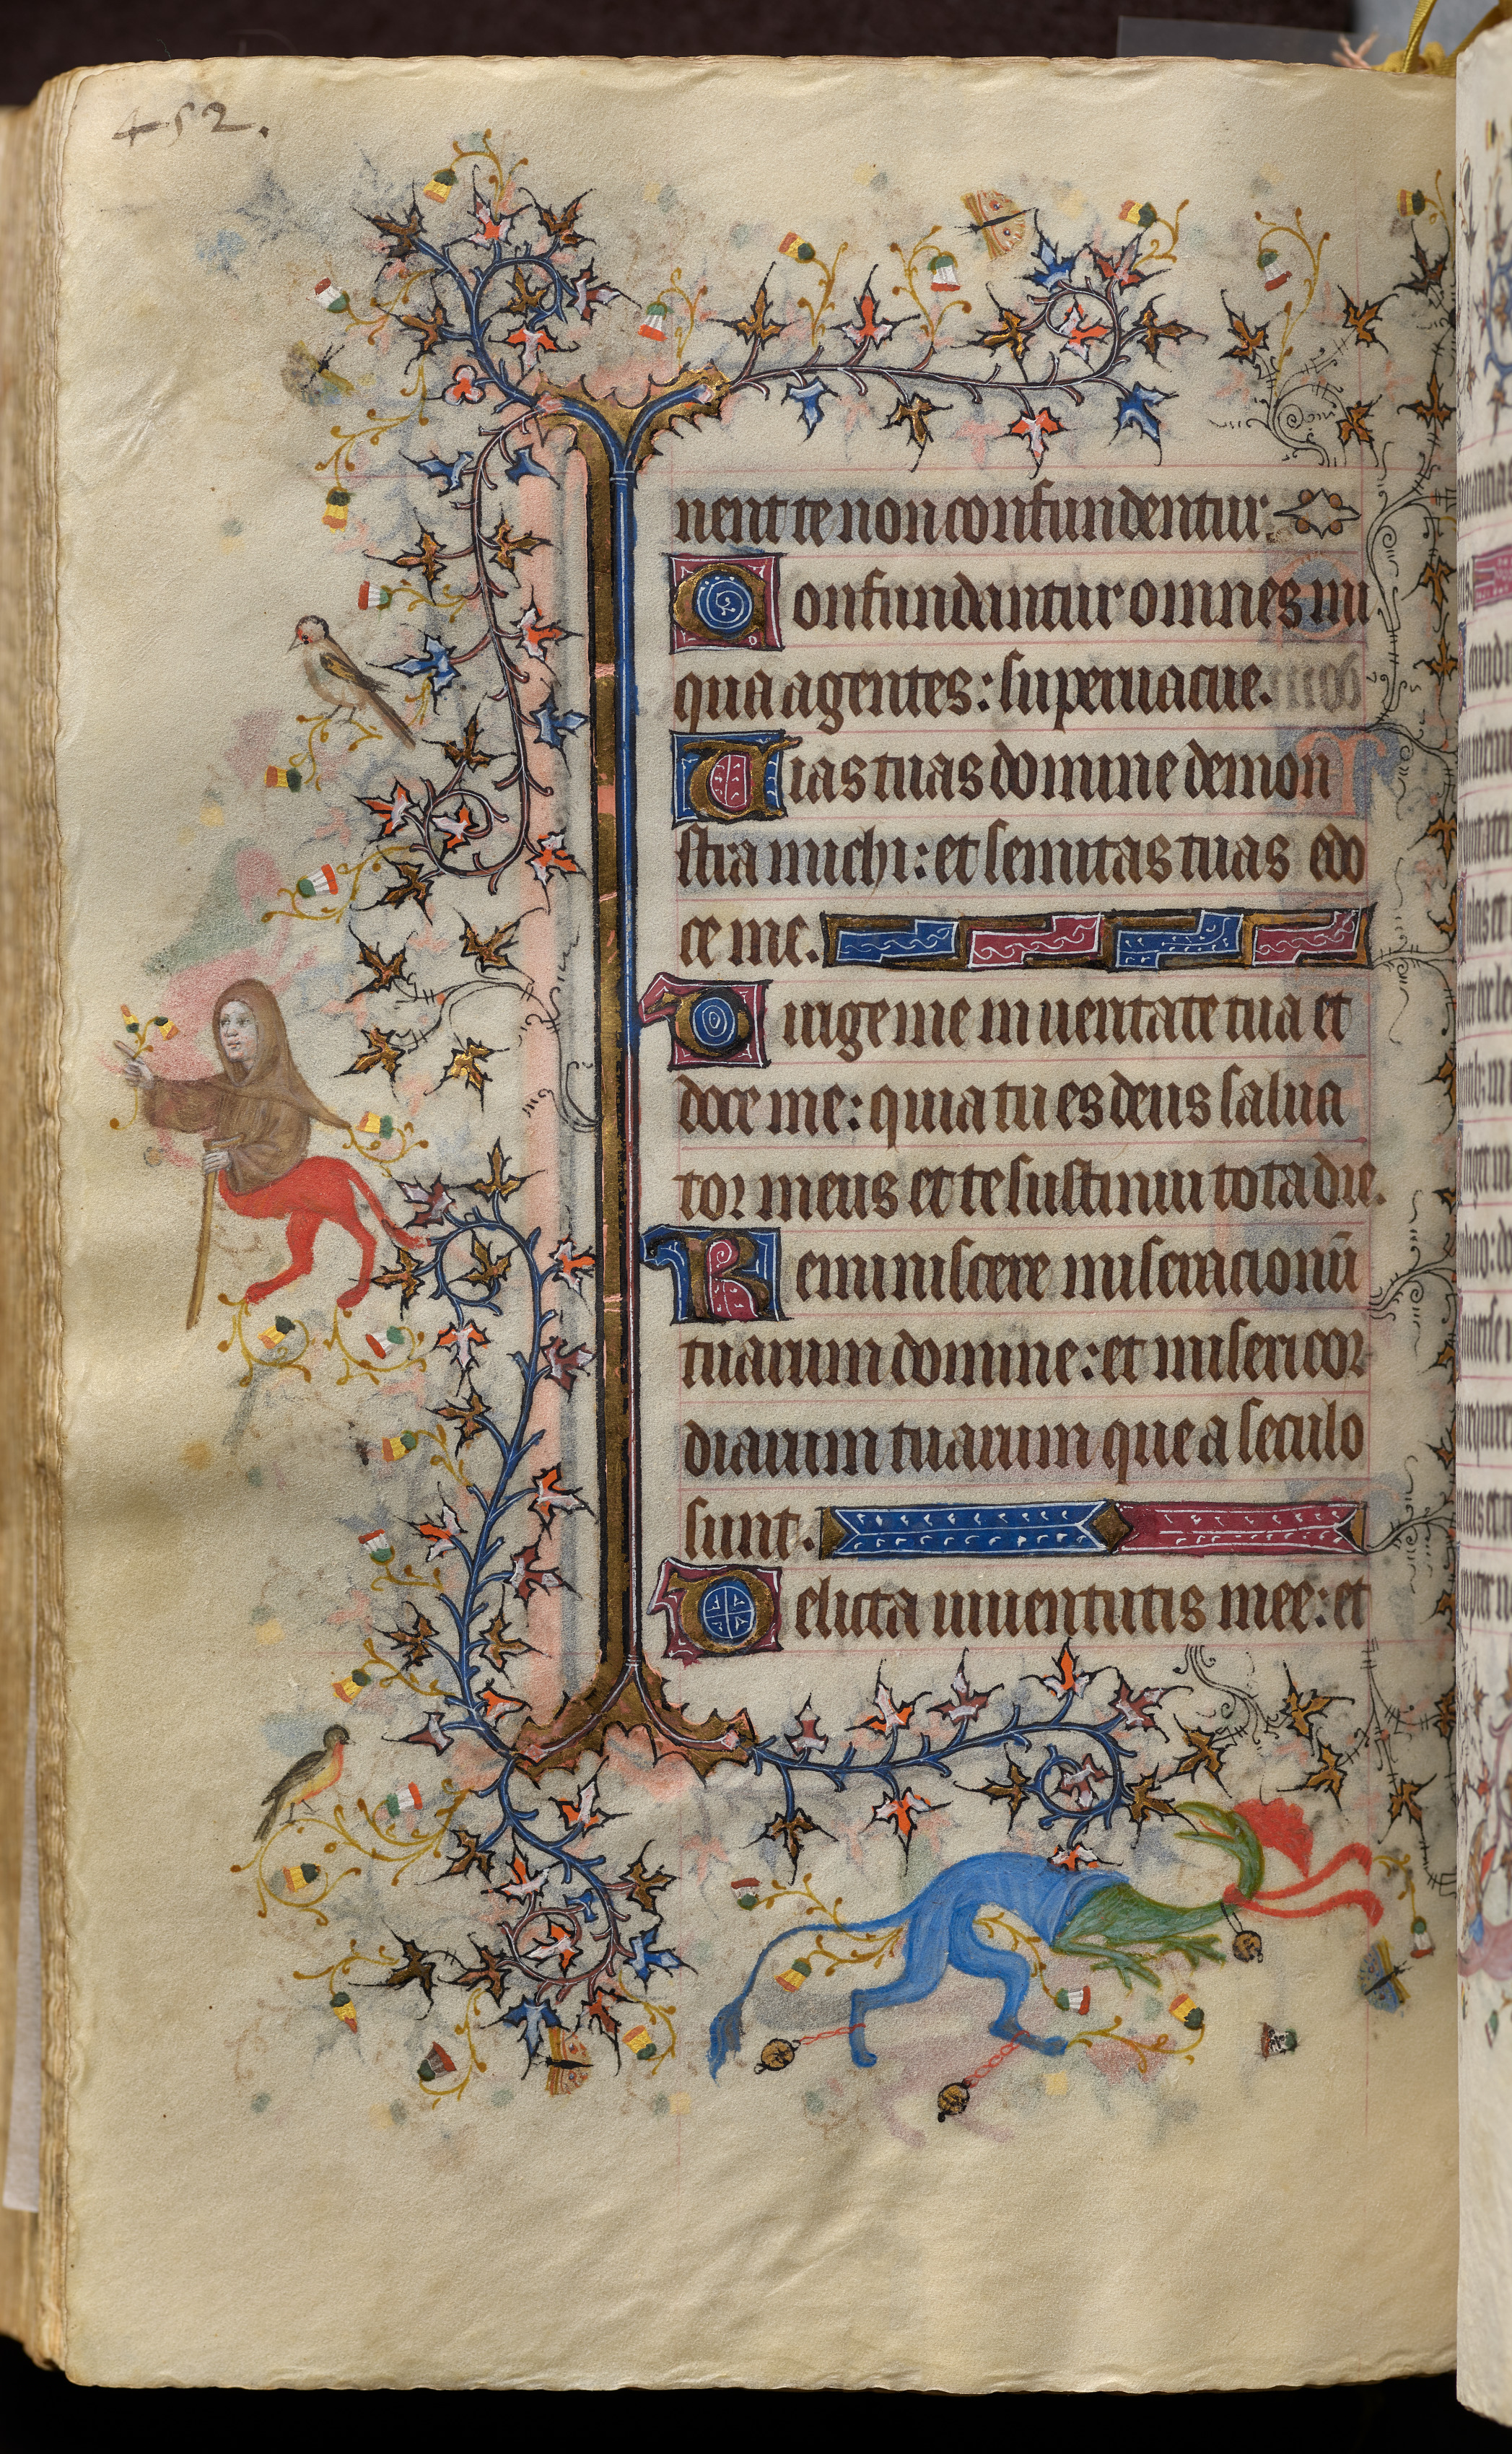 452.
nent te non confundentur.
Confundantur omnes ini
qua agentes: supervacue.
Vias tuas domine demon
stra michi: et semitas tuas edo
ce me.
Dirige me in veritate tua et
doce me: quia tu es deus salua
tor meus et te sustinui tota die.
Reminiscere miseracionū
tuarum domine: et misericor
diarum tuarum que a seculo
sunt.
Delicta iuuentutis mee: et